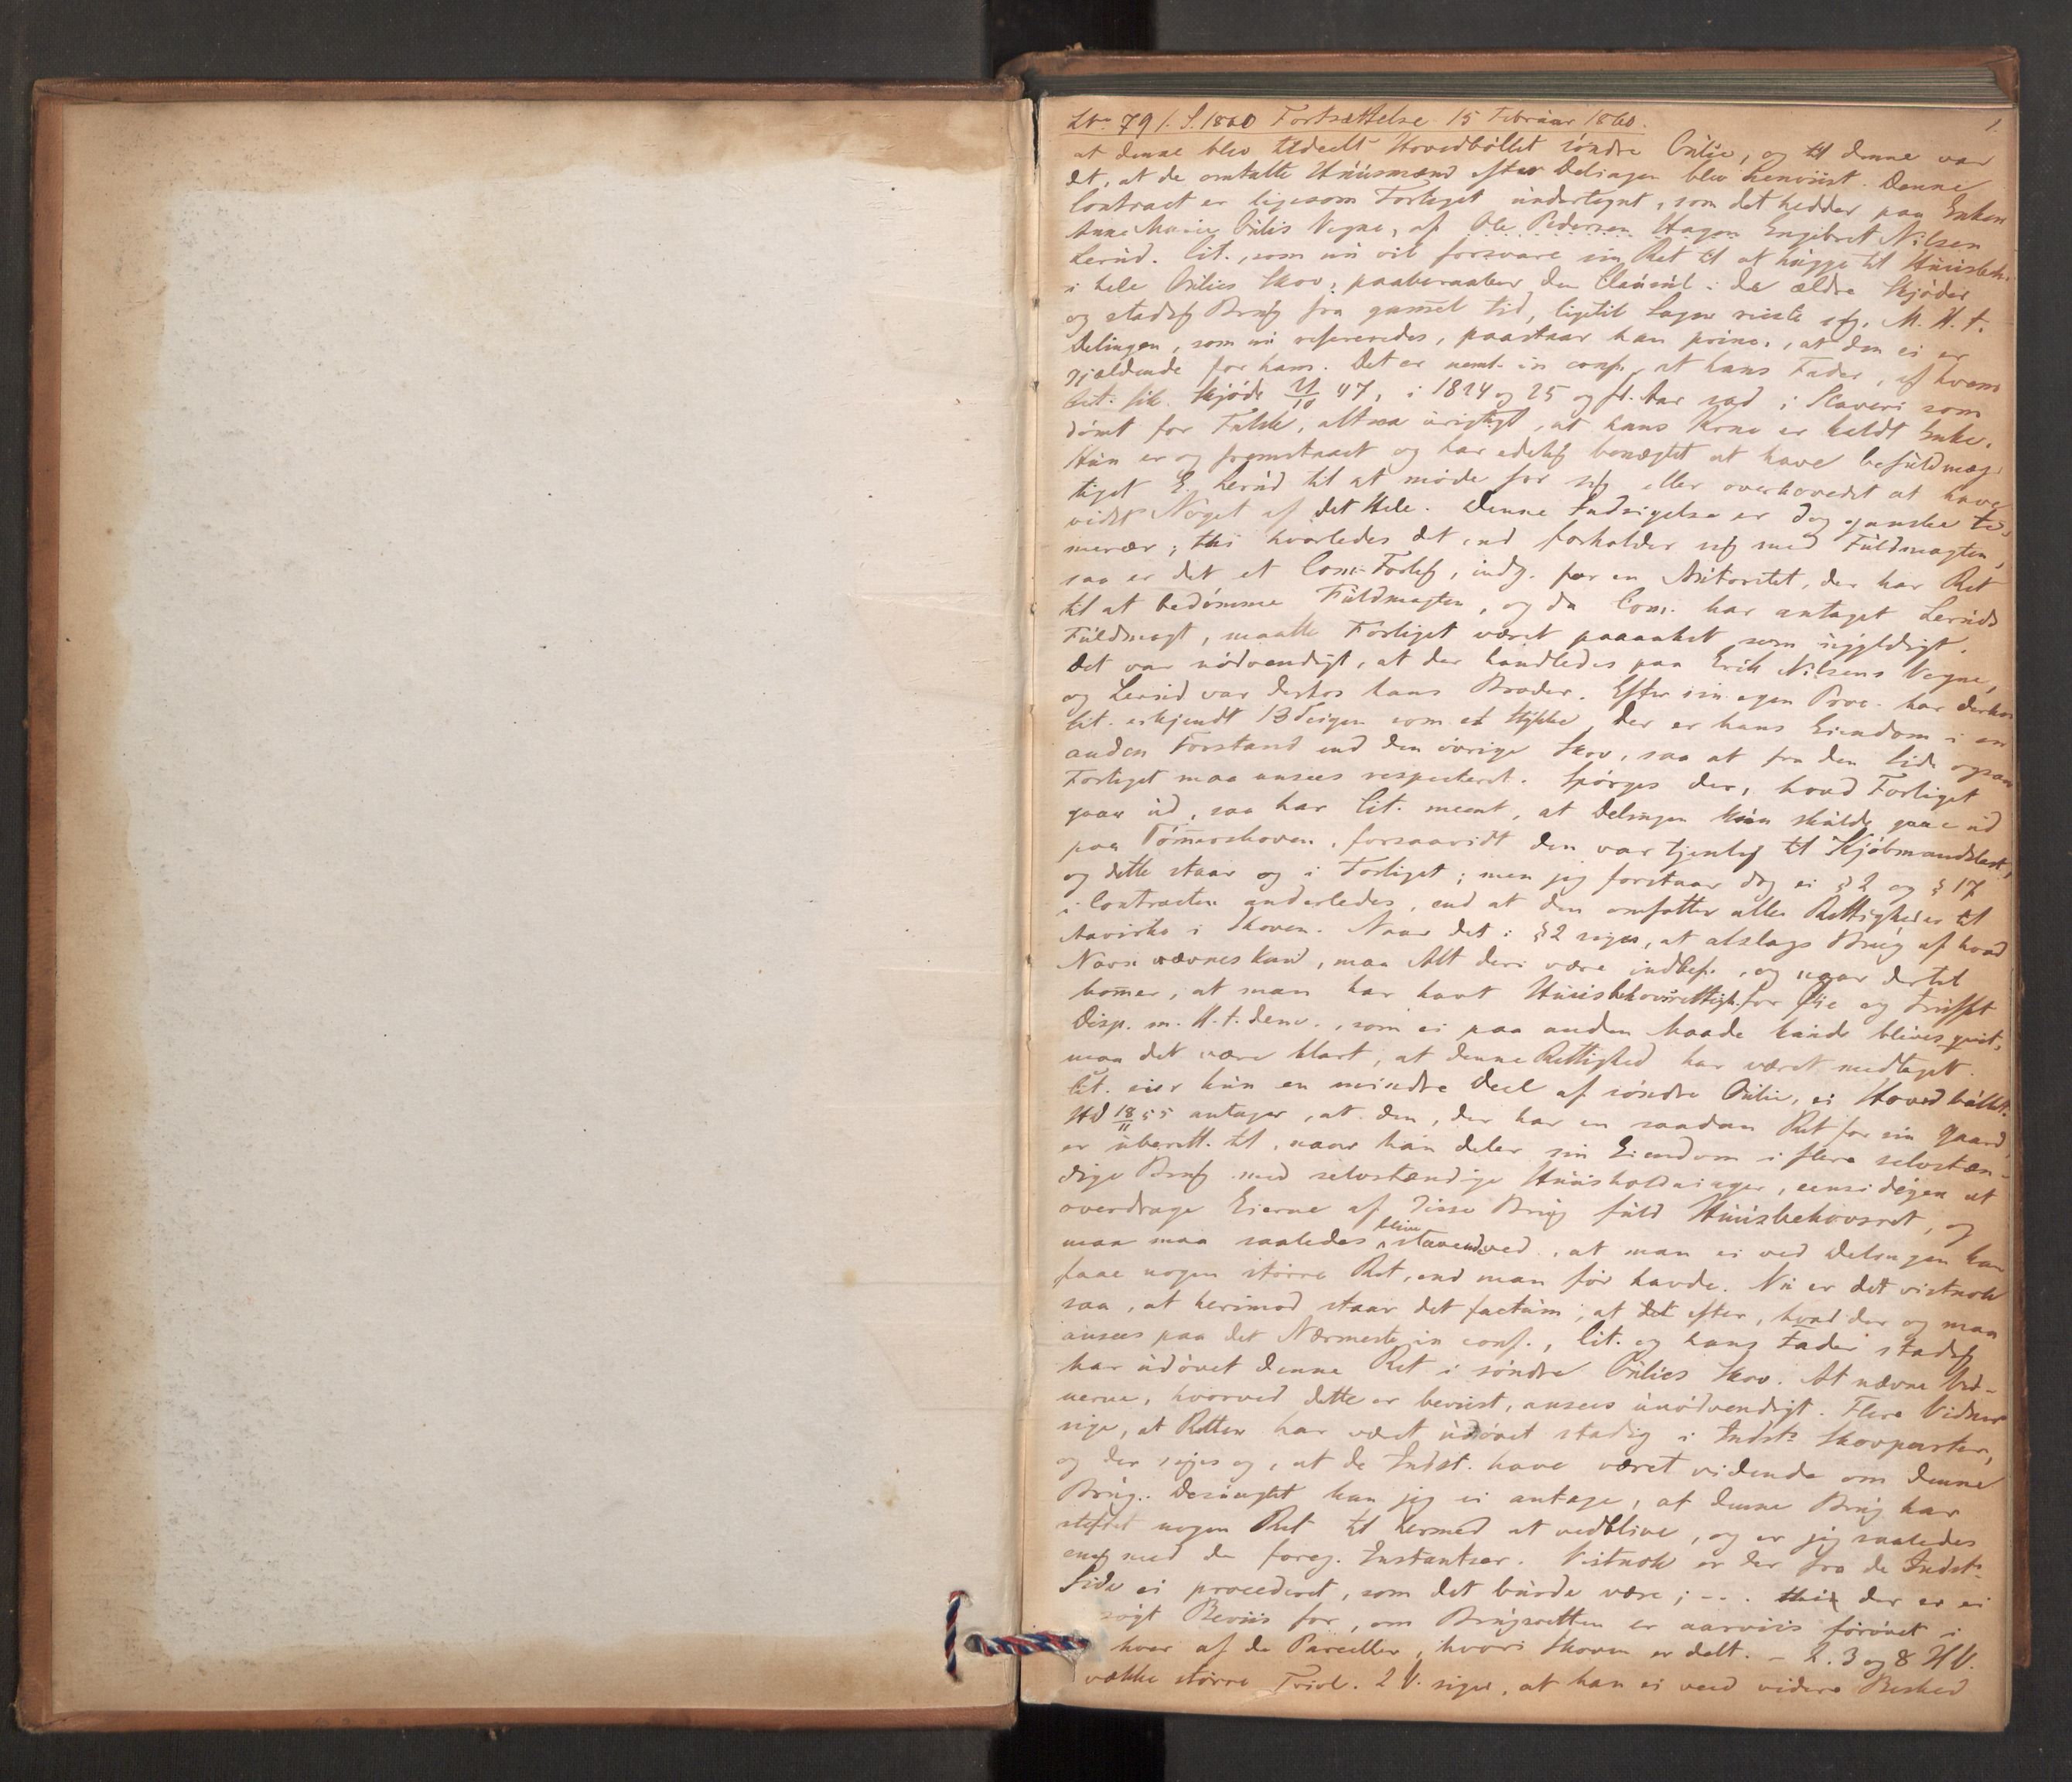 LNo 79 1. S. 1860 Fortsættelse 15 Februar 1860. 1.
at denne blev tildeelt Hovedbøllet søndre Oulie, og til denne var
det, at de omtalte Huusmænd efter Delingen blev henviist. Denne
Contract er ligesom Forliget undertegnt, som det hedder paa Enken
Anne Marie Oulis Vegne, af Ole Pedersen Hagen Engebret Nilsen
Lerud. Cit., som nu vil forsvare sin Ret til at hugge til Huusbeh.
i hele Oulies Skov, paaberaaber den Clausul i de ældre Skjøder
og stadig Brug fra gammel Tid, ligetil Sagen reiste sig. M. H. t.
Delingen, som nu refereredes, paastaar han princ., at den ei er
gjældende for ham. Det er neml. in conf., at hans Fader, af hvem
Cit. fik Skjøde 21/10 47, i 1824 og 25 og fl. Aar sad i Slaveri som
dømt for Falsk, altsaa urigtigt, at hans Kone er kaldt Enke.
Hun er og fremstaaet og har edelig benægtet at have befuldmæg-
tiget E. Lerud til at møde for sig eller overhovedet at have
vidst Noget af det Hele. Denne Indsigelse er dog ganske te-
merær; thi hvorledes det end forholder sig med Fuldmagten,
saa er det et Com.-Forlig, indg. for en Autoritet, der har Ret
til at bedømme Fuldmagten, og da Com. har antaget Leruds
Fuldmagt, maatte Forliget været paaanket som ugyldigt.
Det var nødvendigt, at der handledes paa Erik Nilsens Vegne,
og Lerud var derhos hans Broder. Efter sin egen Proc. har derhos
Cit. erkjendt 13 Teigen som et Stykke, der er hans Eiendom i en
anden Forstand end den øvrige Skov, saa at fra den Side ogsaa
Forliget maa ansees respecteret. Spørges der, hvad Forliget
gaar ud, saa har Cit. meent, at Delingen kun skulde gaae ud
paa Tømmerskoven, forsaavidt den var tjenlig til Kjøbmandslast,
og dette staar og i Forliget; men jeg forstaar dog ei § 2 og § 17
i Contracten anderledes, end at den omfatter alle Rettigheder til
Aavirke i Skoven. Naar det i § 2 siges, at alslags Brug af hvad
Navn nævnes kand, maa Alt deri være indbef., og naar dertil
kommer, at man har havt Huusbehovsrettigh. for Øie og truffet
Disp. m. H. t. denn., som ei paa anden Maade kunde blives qvit,
maa det være klart, at denne Rettighed har været medtaget.
Cit. eier kun en mindre Deel af søndre Oulie, ei Hovedbøllet.
HD 18/11 55 antager, at den, der har en saadan Ret for sin Gaard,
er uberett. til, naar han deler sin Eiendom i flere selvstæn-
dige Brug med selvstændige Huusholdninger, eensidigen at
overdrage Eierne af disse Brug fuld Huusbehovsret, og
man maa saaledes blive staaende ved, at man ei ved Delingen kan
faae nogen større Ret, end man før havde. Nu er det vistnok
saa, at herimod staar det factum, at det efter, hvad der og maa
ansees paa det Nærmeste in conf., Cit. og hans Fader stadig
har udøvet denne Ret i søndre Oulies Skov. At nævne Vid-
nerne, hvorved dette er beviist, ansees unødvendigt. Flere Vidner
sige, at Retten har været udøvet stadig i Indst.s Skovparter,
og der siges og, at de Indst. have været vidende om denne
Brug. Desuagtet kan jeg ei antage, at denne Brug har
stiftet nogen Ret til hermed at vedblive, og er jeg saaledes
enig med de foreg. Instantser. Vistnok er der fra de Indst.s
Side ei procederet, som det burde være; --. thi der er ei
søgt Beviis for, om Brugsretten er aarviis forøvet i
hver af de Parceller, hvori Skoven er delt. – 2. 3 og 8 HV.
vække større Tvivl. 2 V. siger, at han ei veed videre Besked